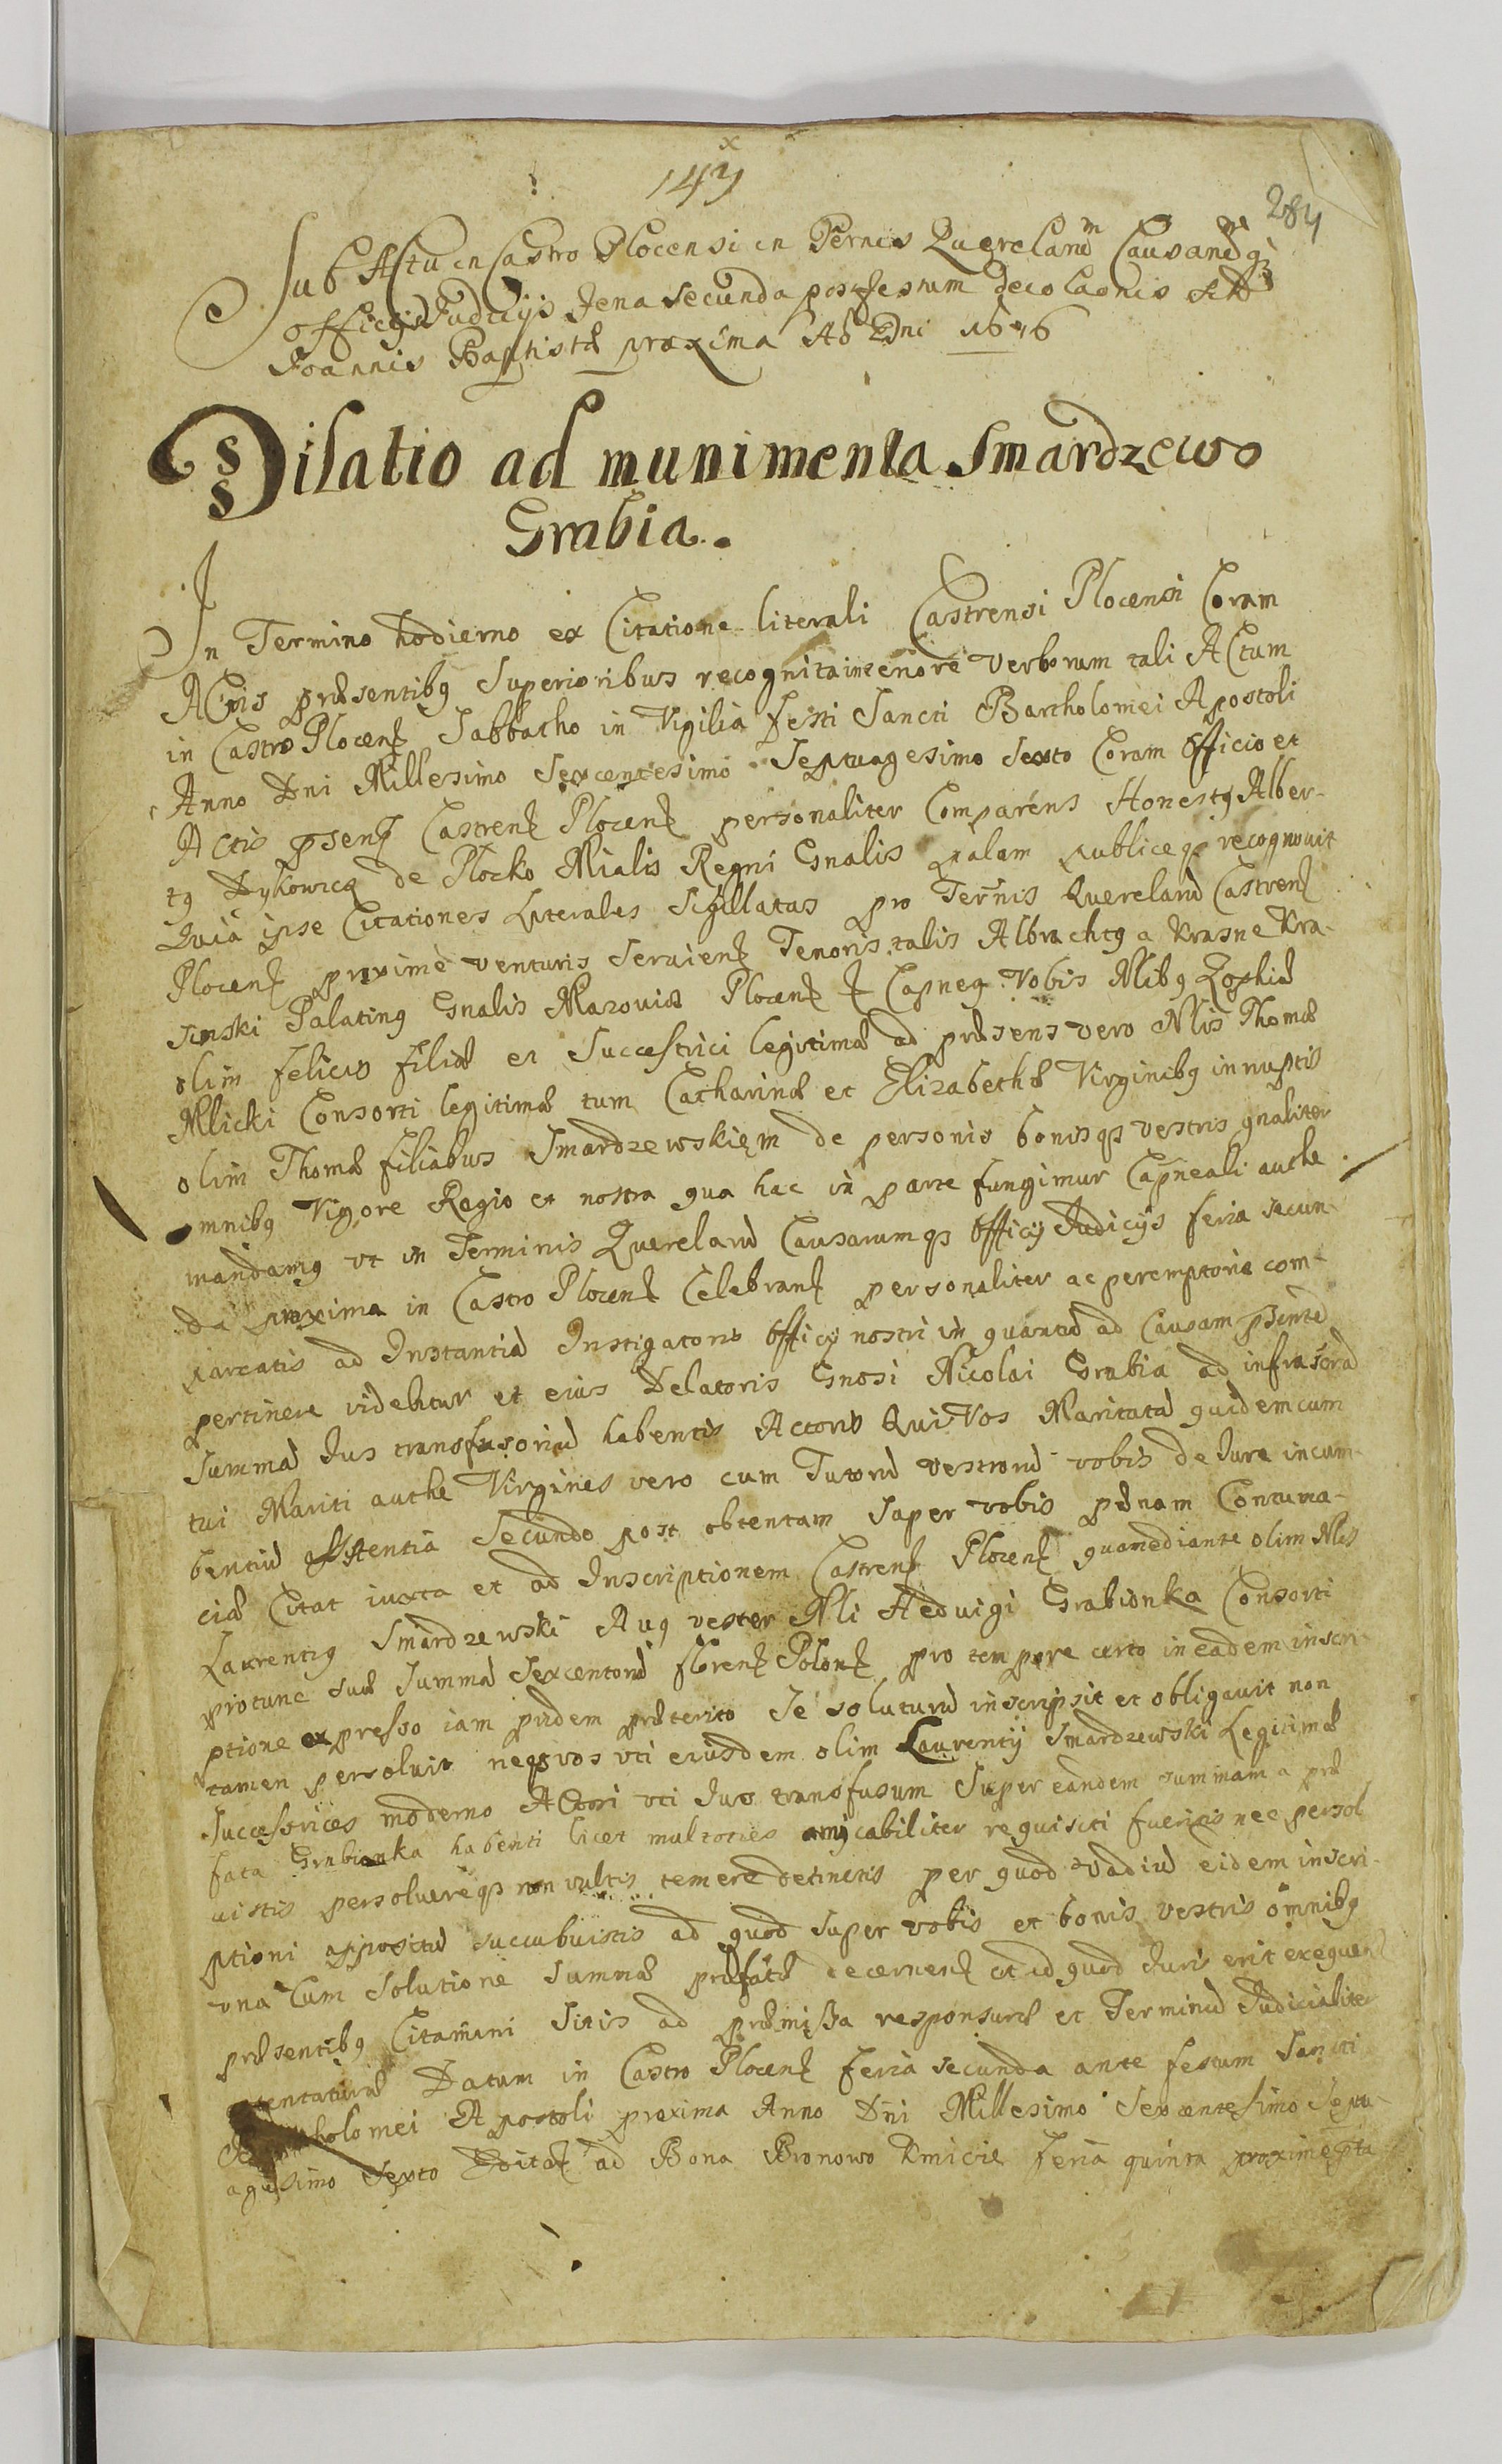 147
284
Sub Actu in Castro Plocensi in Termis Querelarum Causarumqz
Officij Judicijs Feria Secunda post festum Decolaonis Scti
Joannis Baptistæ proxima Ao Dni 1676
Dilatio ad munimenta Smardzewo
Grabia.
In Termino hodierno ex Citatione literali Castrensi Plocensi Coram
Actis præsentibq Superioribus recognita in tenore Verborum tali Actum
in Castro Plocen Sabbatho in Vigilia Festi Sancti Bartholomei Apostoli
Anno Dni Millesimo Sexcentesimo Septuagesimo Sexto Coram Officio et
Actis psen Castren Plocen personaliter Comparens Honestq Alber-
tq Dykowicz de Plocko Mialis Regni Gnalis palam publiceqz recognouit
Quia ipse Citationes Literales Sigillatas pro Ternis Querelarum Castren
Plocen proximè venturis Seruien Tenoris talis Albrachtq a Krasne Kra-
sinski Palatinq Gnalis Mazouiæ Plocen Capneq Vobis Nlibq Zophiæ
olim Felicis filiæ et Successtrici legitimæ ad præsens vero Nlis Thomæ
Mlicki Consorti legitimæ tum Catharinæ et Elizabethæ Virginibq innuptis
olim Thomæ filiabus Smardzewskiem de personis bonisqz vestris gnaliter
omnibq Vigore Regio et nostra qua hac in parte fungimur Capneali authe
mandamq vt in Terminis Querelarum Causarumqz Officij Judicijs feria secun-
da proxima in Castro Plocen Celebran personaliter ac peremptorie com-
pareatis ad Instantiam Instigatoris Officij nostri in quantum ad Causam psente
pertinere videbitur et eius Delatoris Gnosi Nicolai Grabia ad infrascrad
Summam Jus transfusorium habentis Actoris Qui Vos Maritatam quidem cum
tui Mariti authe Virgines vero cum Tutorum vestrorum vobis de Jure incum-
bentium assistentia Secundo post obtentam Super vobis pœnam Contuma-
ciæ Citat iuxta et ad Inscriptionem Castren Plocen qua mediante olim Nlis
Laurentiq Smardzewski Auq vester Nli Hedvigi Grabionka Consorti
protunc suæ Summam Sexcentorum floren Polon pro tempore certo in eadem inscri-
ptione expresso iam pridem præterito Se soluturum inscripsit et obligauit non
tamen persoluit neqz vos vti eiusdem olim Laurentij Smardzewski Legitimæ
Successtrices moderno Actori vti Jus transfusum Super eandem summam a præ
fata Grabionka habenti licet multoties amycabiliter requisiti fueritis nec persol
uistis persoluereqz non vultis temere detinetis per quod Vadium eidem inscri-
ptioni appositum succubuistis ad quod super vobis et bonis vestris omnibq
vna Cum Solutione Summæ præfatæ decernen et id quod Juris erit exequen
præsentibq Citamini Sitis ad præmissa responsuræ et Terminum Judicialiter
attentaturæ Datum in Castro Plocen Feria secunda ante festum Sancti
Bartholomei Apostoli proxima Anno Dni Millesimo Sexcentesimo Septu-
agesimo Sexto Posita ad Bona Bronowo Kmicie Feria quinta proxime pta